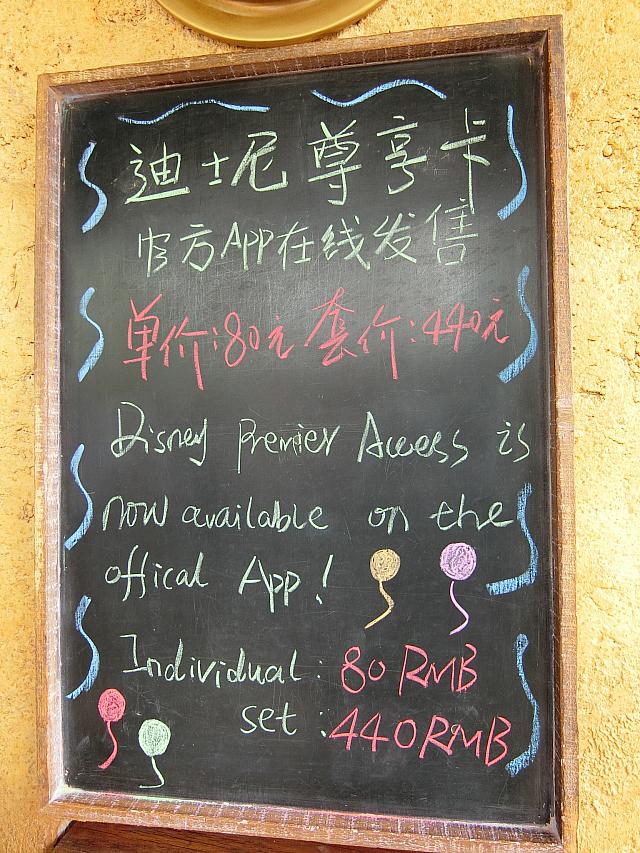 迪士尼尊享卡
官方APP在线发售
单价:80元 套价:440元
Disney Premier Access is
now available on the
offical App!
Individual: 80 RMB
set: 440RMB